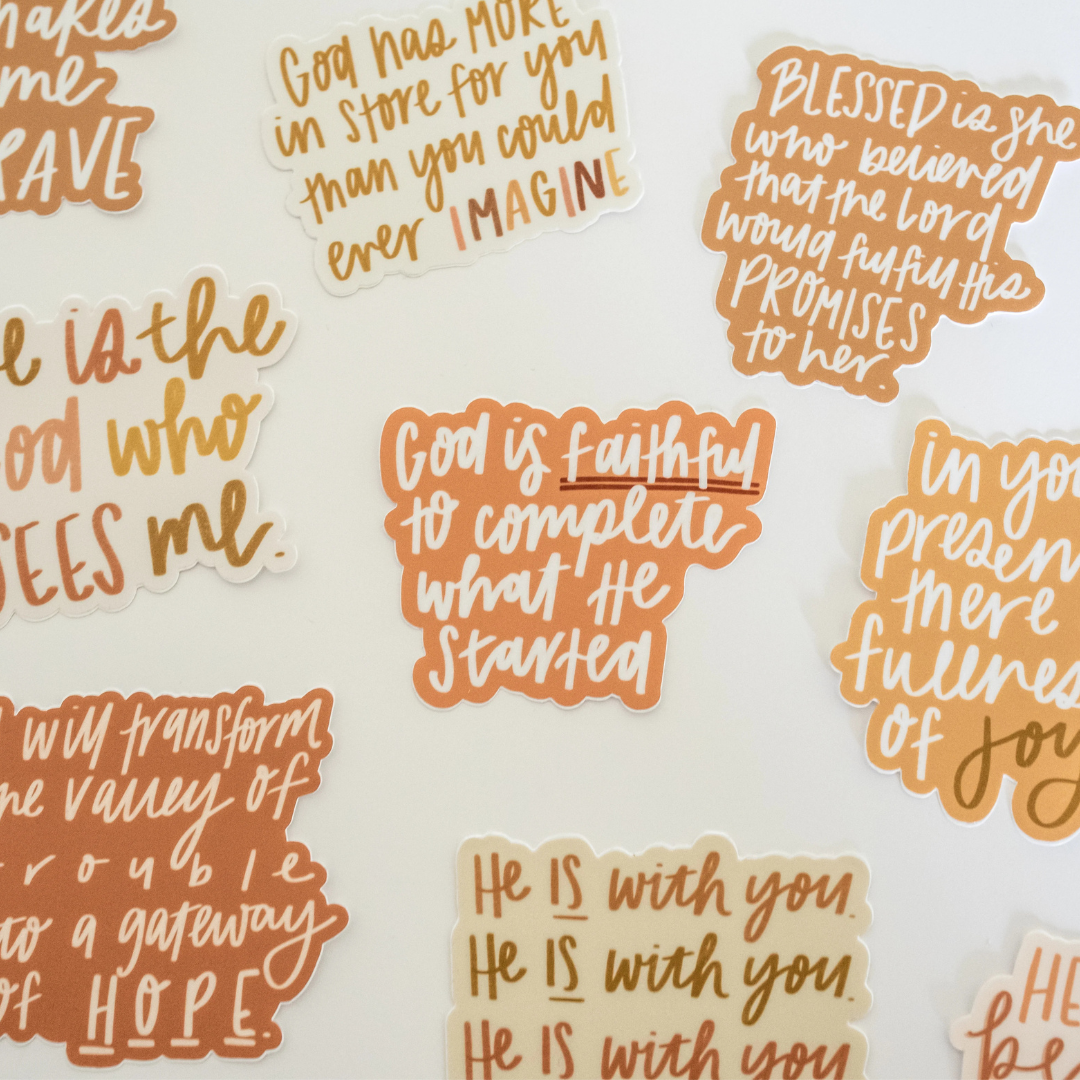 makes
me
BRAVE
God has MORE
in store for you
than you could
ever IMAGINE
BLESSED is she
who believed
that the Lord
would fulfill His
PROMISES
to her.
He is the
God who
SEES me.
God is faithful
to complete
what He
started
in your
presence
there
fullness
of joy
I will transform
the valley of
trouble
into a gateway
of HOPE.
He IS with you.
He IS with you.
He IS with you
HE
be